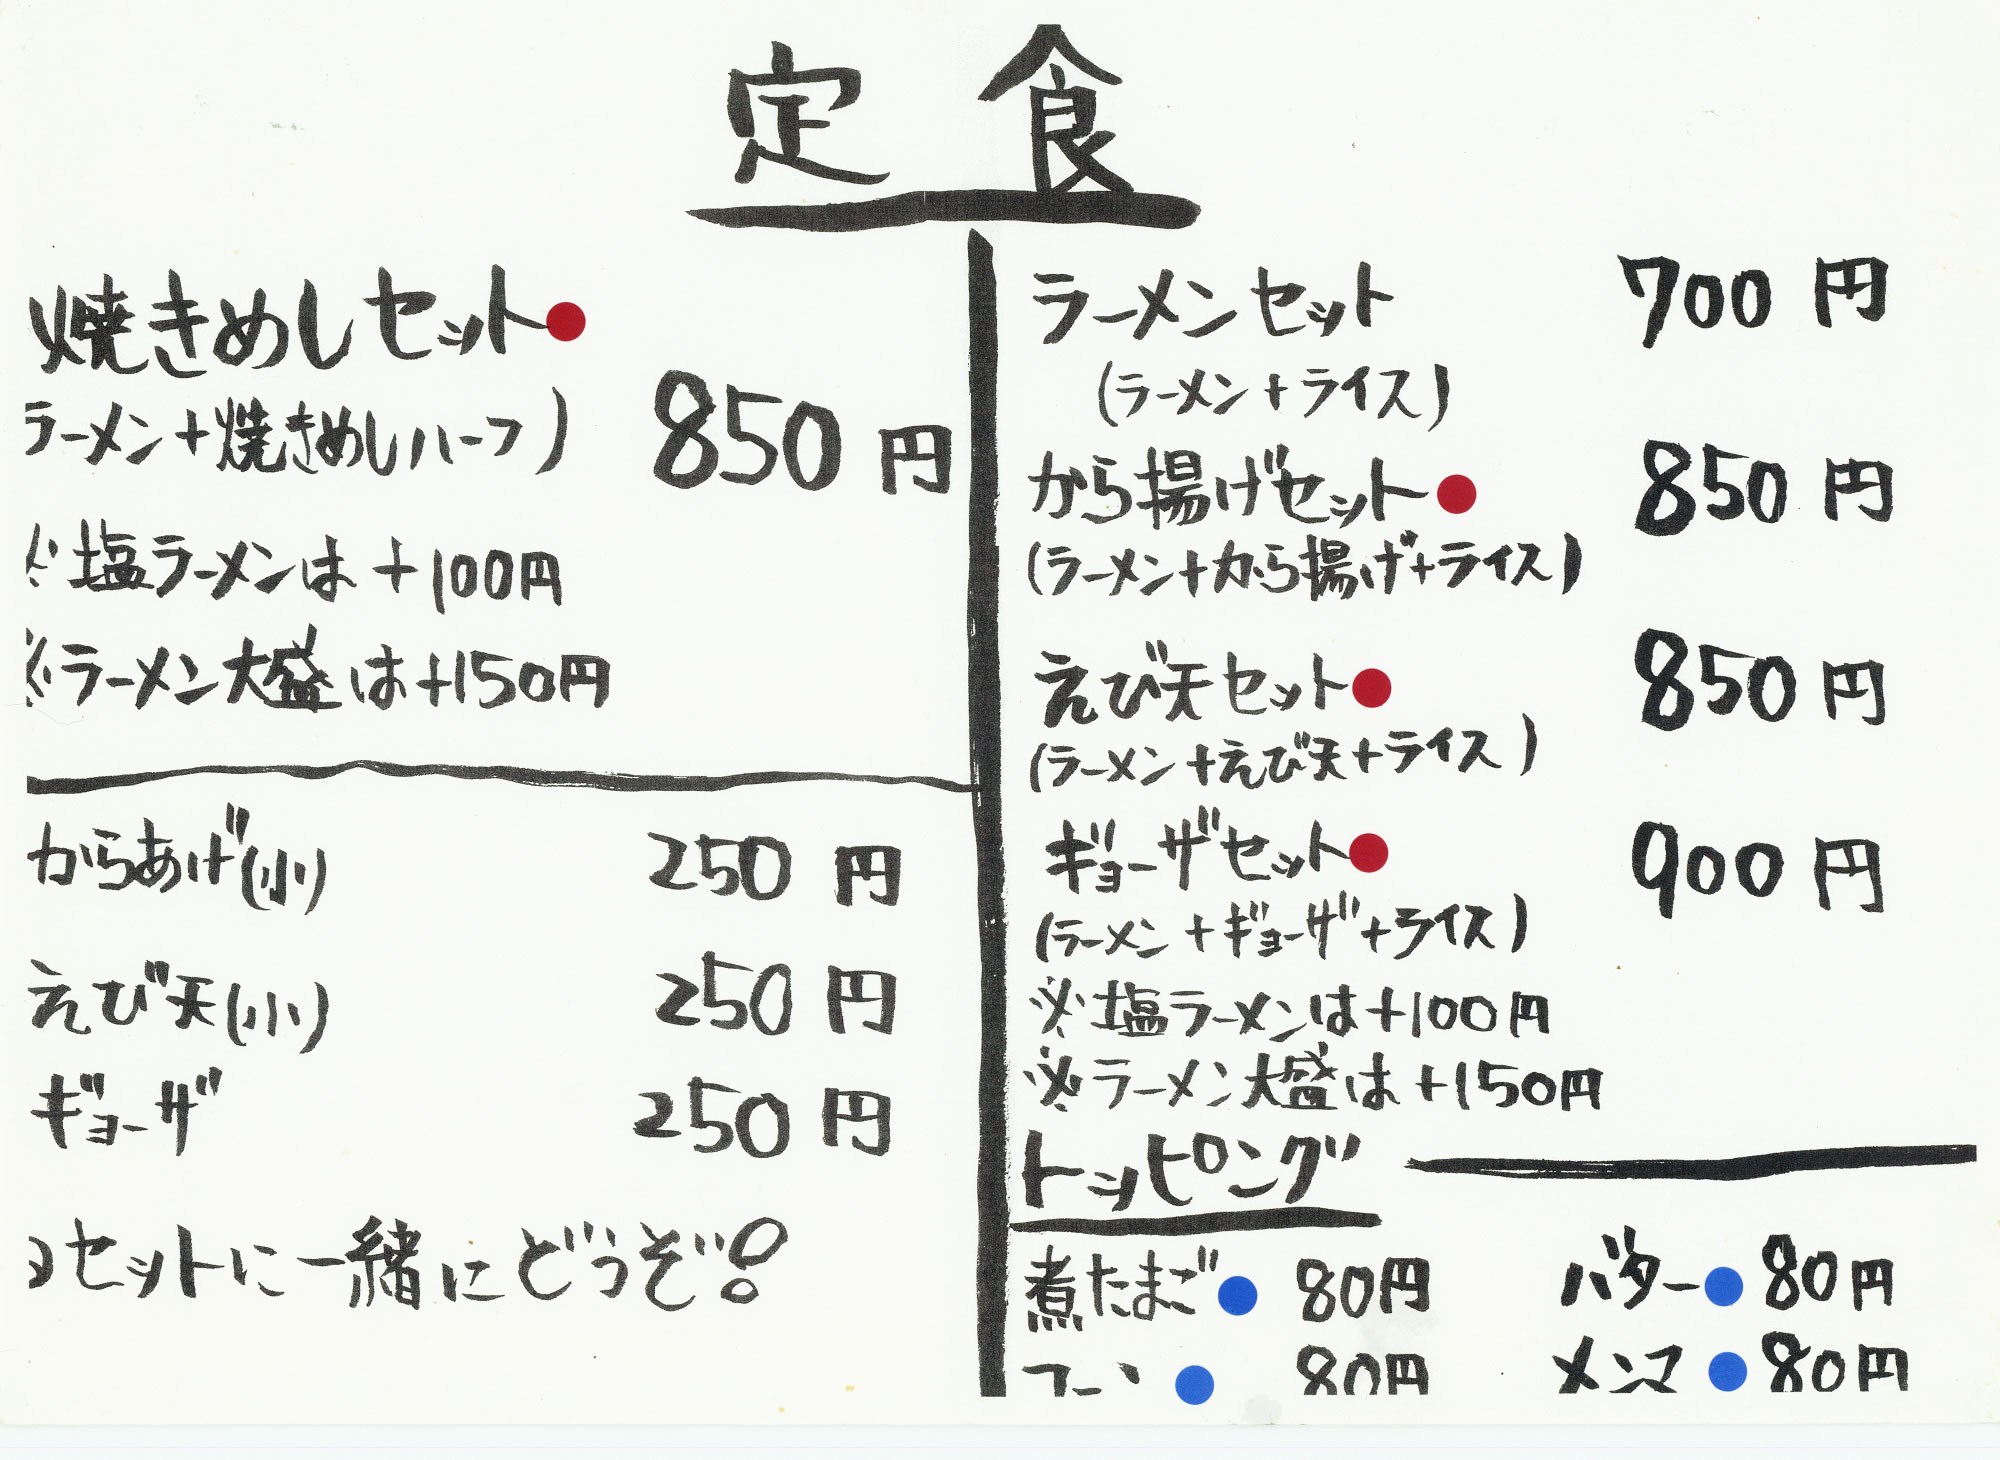 定食
焼きめしセット
ラーメン+焼きめしハーフ)
850円
※塩ラーメンは+100円
※ラーメン大盛は+150円
からあげ(小) 250円
えび天(小) 250円
ギョーザ 250円
セットに一緒にどうぞ!
ラーメンセット 700円
(ラーメン+ライス)
から揚げセット 850円
(ラーメン+から揚げ+ライス)
えび天セット 850円
(ラーメン+えび天+ライス)
ギョーザセット 900円
(ラーメン+ギョーザ+ライス)
※塩ラーメンは+100円
※ラーメン大盛は+150円
トッピング
煮たまご 80円 バター 80円
80円 メンマ 80円